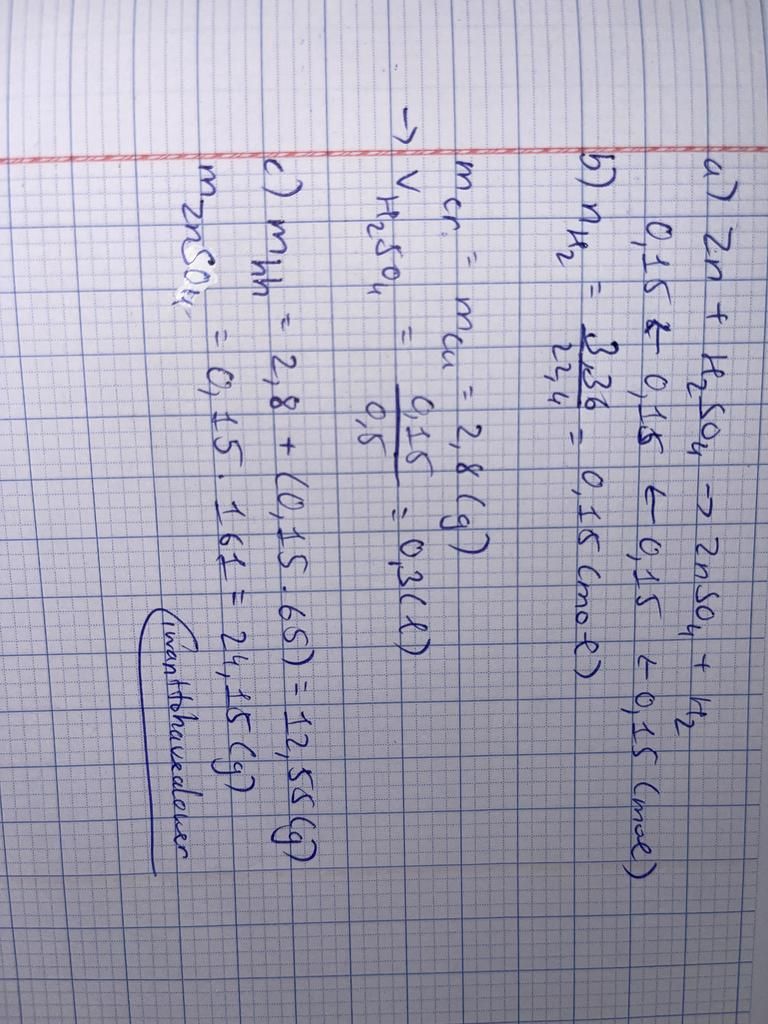 a) Zn + H₂SO₄ → ZnSO₄ + H₂
0,15 ← 0,15 ← 0,15 ← 0,15 (mol)
b) nH₂ = 3,36/22,4 = 0,15 (mol)
mcr = mcu = 2,8 (g)
→ VH₂SO₄ = 0,15/0,5 = 0,3 (l)
c) mhh = 2,8 + (0,15 . 65) = 12,55 (g)
mZnSO₄ = 0,15 . 161 = 24,15 (g)
iwanttohavealover